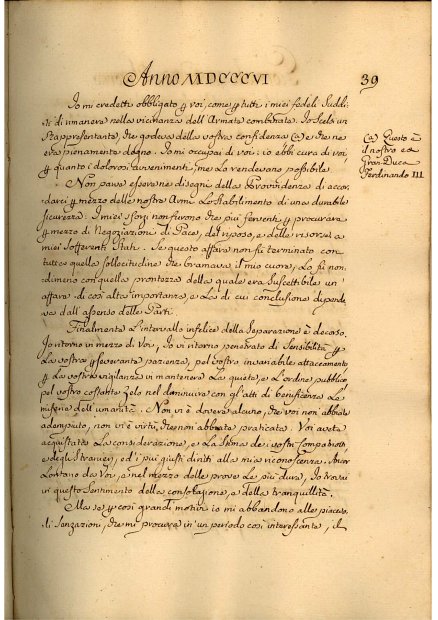 Anno MDCCCVI
39
Io mi credetti obbligato p voi, come p tutti i miei fedeli Suddi-
ti di rimanere nella vicinanza dell'Armata combinata. Io scelsi un
Rappresentante, che godeva della vostra confidenza (a) e che ne
era pienamente degno. Io mi occupai di voi: io ebbi cura di voi
p quanto i dolorosi avvenimenti, me la rendevano possibile.
(a) Questo è
il nostro ex
Gran-Duca
Ferdinando III.
Non pareva essere ne' disegni della Provvidenza di accor-
darci p mezzo delle nostre Armi lo stabilimento di una durabile
sicurezza. I miei sforzi non furono che più ferventi p procurare
p mezzo di Negoziazioni di Pace, del riposo, e delle risorse a
miei sofferenti Stati. Se questo affare non fù terminato con
tutta quella sollecitudine che bramava il mio cuore, lo fù non-
dimeno con quella prontezza della quale era suscettibile un'
affare di così alta importanza, e la di cui conclusione dipende-
va dall'assenso delle Parti.
Finalmente l'intervallo infelice della separazione è decorso.
Io ritorno in mezzo di Voi, Io vi ritorno penetrato di sensibilità p
la vostra pseverante pazienza, pel vostro invariabile attaccamento
p la vostra vigilanza in mantenere la quiete, e l'ordine pubblico
pel vostro costante zelo nel diminuire con gl'atti di beneficenza le
miserie dell'umanità. Non vi è dovere alcuno, che voi non abbiate
adempiuto, non vi è virtù, che non abbiate praticata. Voi avete
acquistata la considerazione, e la stima de i vostri Compatriotti
e degli Stranieri, ed i più giusti diritti alla mia riconoscenza. Ancor
lontano da Voi, e nel mezzo delle prove le più dure, Io trovai
in questo sentimento della consolazione, e della tranquillità.
Ma se p così grandi motivi io mi abbandono alle piacevo-
li sensazioni, che mi procura in un periodo così interessante, il